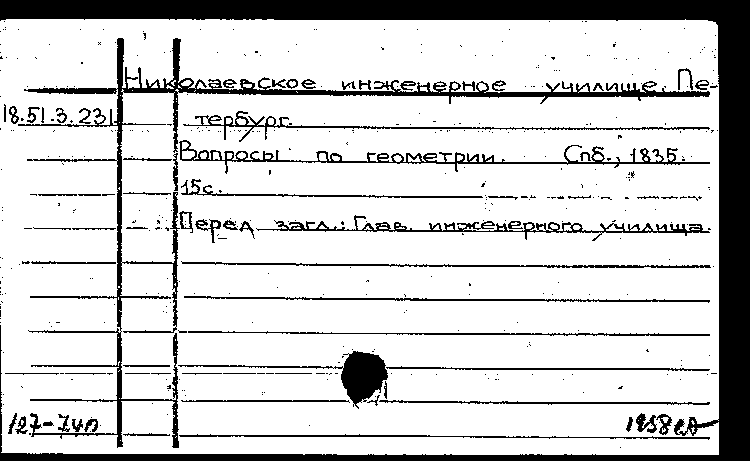 Николаевское инженерное училище. Пе-
18.51.3.231 тербург.
Вопросы по геометрии. Спб., 1835.
15с.
Перед загл.: Глав. инженерного училища.
127-74п